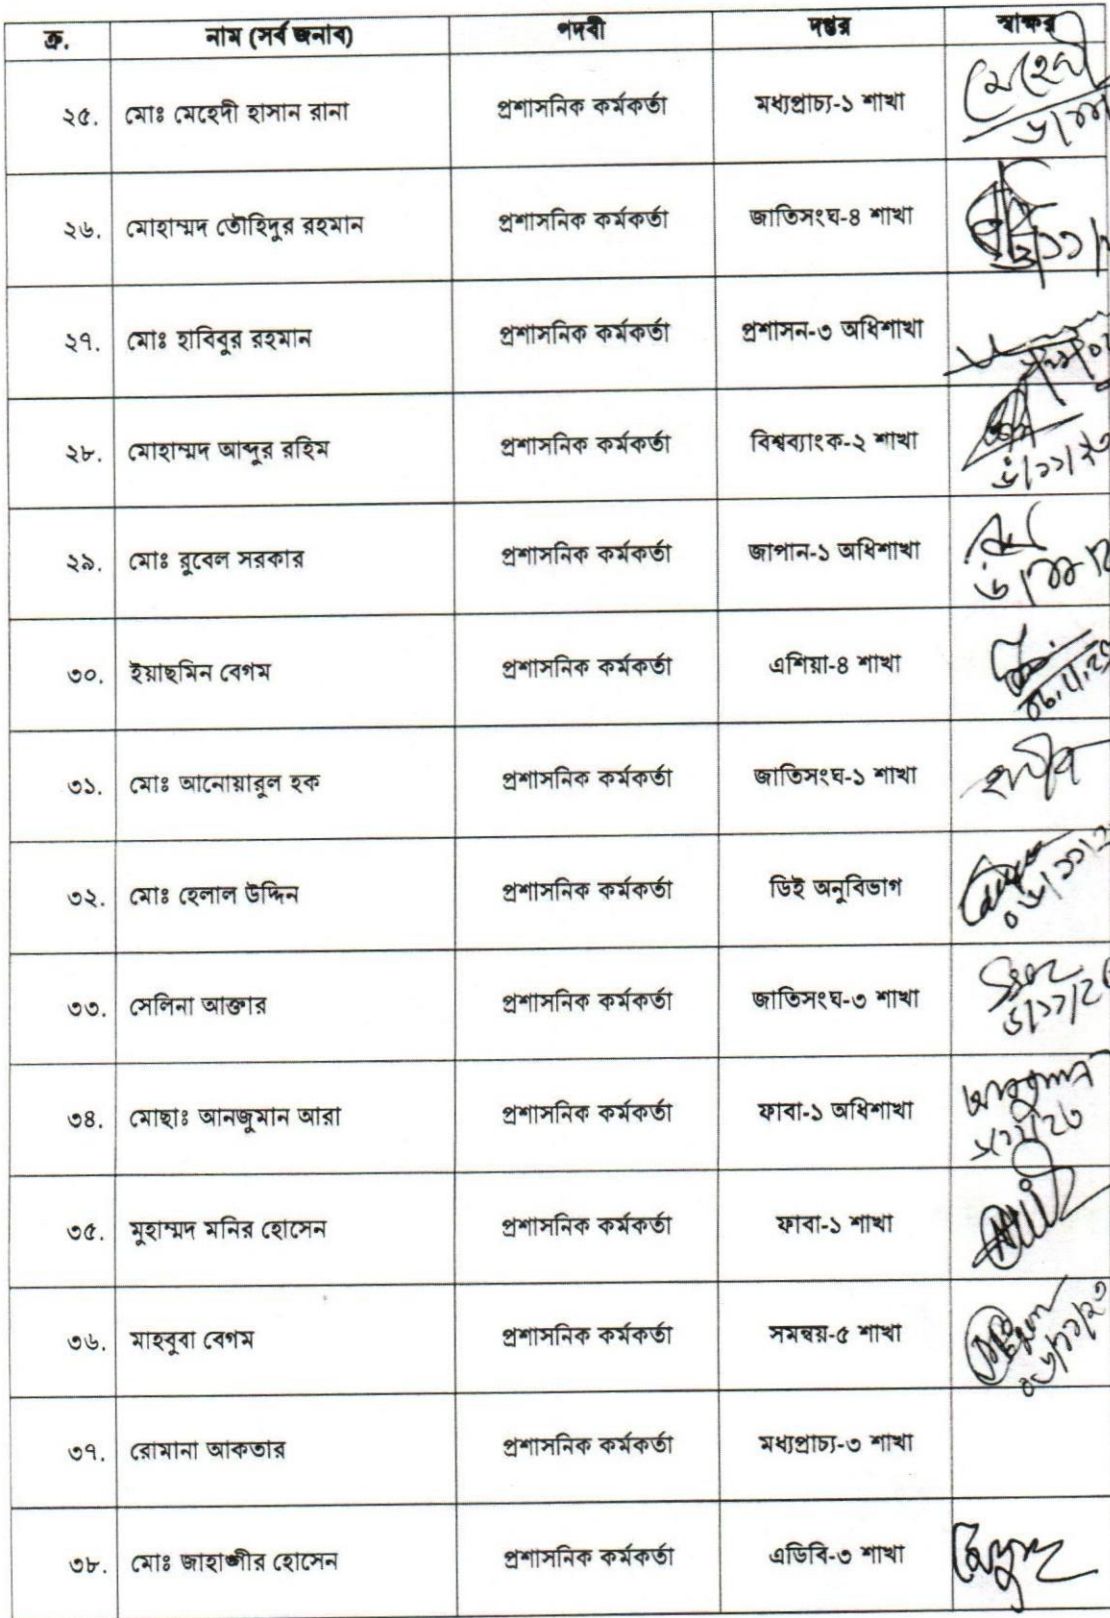 ক্র. নাম (সর্ব জনাব) পদবী দপ্তর স্বাক্ষর
২৫. মোঃ মেহেদী হাসান রানা প্রশাসনিক কর্মকর্তা মধ্যপ্রাচ্য-১ শাখা মেহেদী
২৬. মোহাম্মদ তৌহিদুর রহমান প্রশাসনিক কর্মকর্তা জাতিসংঘ-৪ শাখা
২৭. মোঃ হাবিবুর রহমান প্রশাসনিক কর্মকর্তা প্রশাসন-৩ অধিশাখা
২৮. মোহাম্মদ আব্দুর রহিম প্রশাসনিক কর্মকর্তা বিশ্বব্যাংক-২ শাখা
৬/১১/২৩
২৯. মোঃ রুবেল সরকার প্রশাসনিক কর্মকর্তা জাপান-১ অধিশাখা
৩০. ইয়াছমিন বেগম প্রশাসনিক কর্মকর্তা এশিয়া-৪ শাখা
৩১. মোঃ আনোয়ারুল হক প্রশাসনিক কর্মকর্তা জাতিসংঘ-১ শাখা
৩২. মোঃ হেলাল উদ্দিন প্রশাসনিক কর্মকর্তা ডিই অনুবিভাগ
৩৩. সেলিনা আক্তার প্রশাসনিক কর্মকর্তা জাতিসংঘ-৩ শাখা
৩৪. মোছাঃ আনজুমান আরা প্রশাসনিক কর্মকর্তা ফাবা-১ অধিশাখা
৬/১১/২৩
৩৫. মুহাম্মদ মনির হোসেন প্রশাসনিক কর্মকর্তা ফাবা-১ শাখা
৩৬. মাহবুবা বেগম প্রশাসনিক কর্মকর্তা সমন্বয়-৫ শাখা
০৬/১১/২৩
৩৭. রোমানা আকতার প্রশাসনিক কর্মকর্তা মধ্যপ্রাচ্য-৩ শাখা
৩৮. মোঃ জাহাঙ্গীর হোসেন প্রশাসনিক কর্মকর্তা এডিবি-৩ শাখা